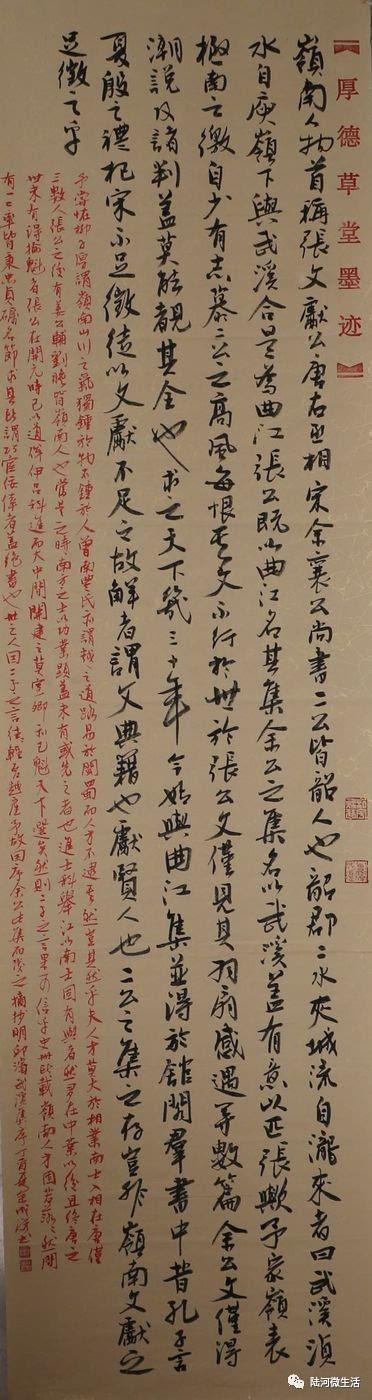 【厚德草堂墨迹】
嶺南人物首稱張文獻公唐右丞相宋余襄公尚書二公皆韶人也韶郡二水夾城流自瀧來者曰武溪湞
水自庾嶺下與武溪合是爲曲江張公既以曲江名其集余公之集名以武溪蓋有意以匹張歟予家嶺表
極南之徼自少有志慕二公之高風每恨其文不行於世於張公文僅見其羽扇感遇等數篇余公文僅得
潮說及諸判蓋莫能覩其全也求之天下幾三十年今始與曲江集並得於館閣羣書中昔孔子言
夏殷之禮杞宋不足徵徒以文獻不足之故解者謂文典籍也獻賢人也二公之集之存豈非嶺南文獻之
足徵之乎
予嘗怪柳子厚謂嶺南山川之氣獨鍾於物不鍾於人曾南豐氏亦謂越之道路易於閩蜀而人才不逮焉豈其然乎夫人才莫大於相業南士入相在唐僅
三數人張公之後有姜公輔劉瞻皆嶺南人也當是之時南方之士以功業顯蓋未有或先之者也進士科舉江以南士固有與者然多在中葉以後且終唐之
世未有得掄魁者張公在開元時已以道侔伊呂科進而大中間開建之莫宣卿亦已魁天下選矣然則二子之言果可信乎史冊所載嶺南人才固若落落然間
有一二率皆秉忠貞礪名節求其所謂巧宦佞倖者蓋絕無也世之人因二子之言往往輕吾越產予故因序余公此集而及之摘抄明邱濬武溪集序丁酉夏書
陆河微生活